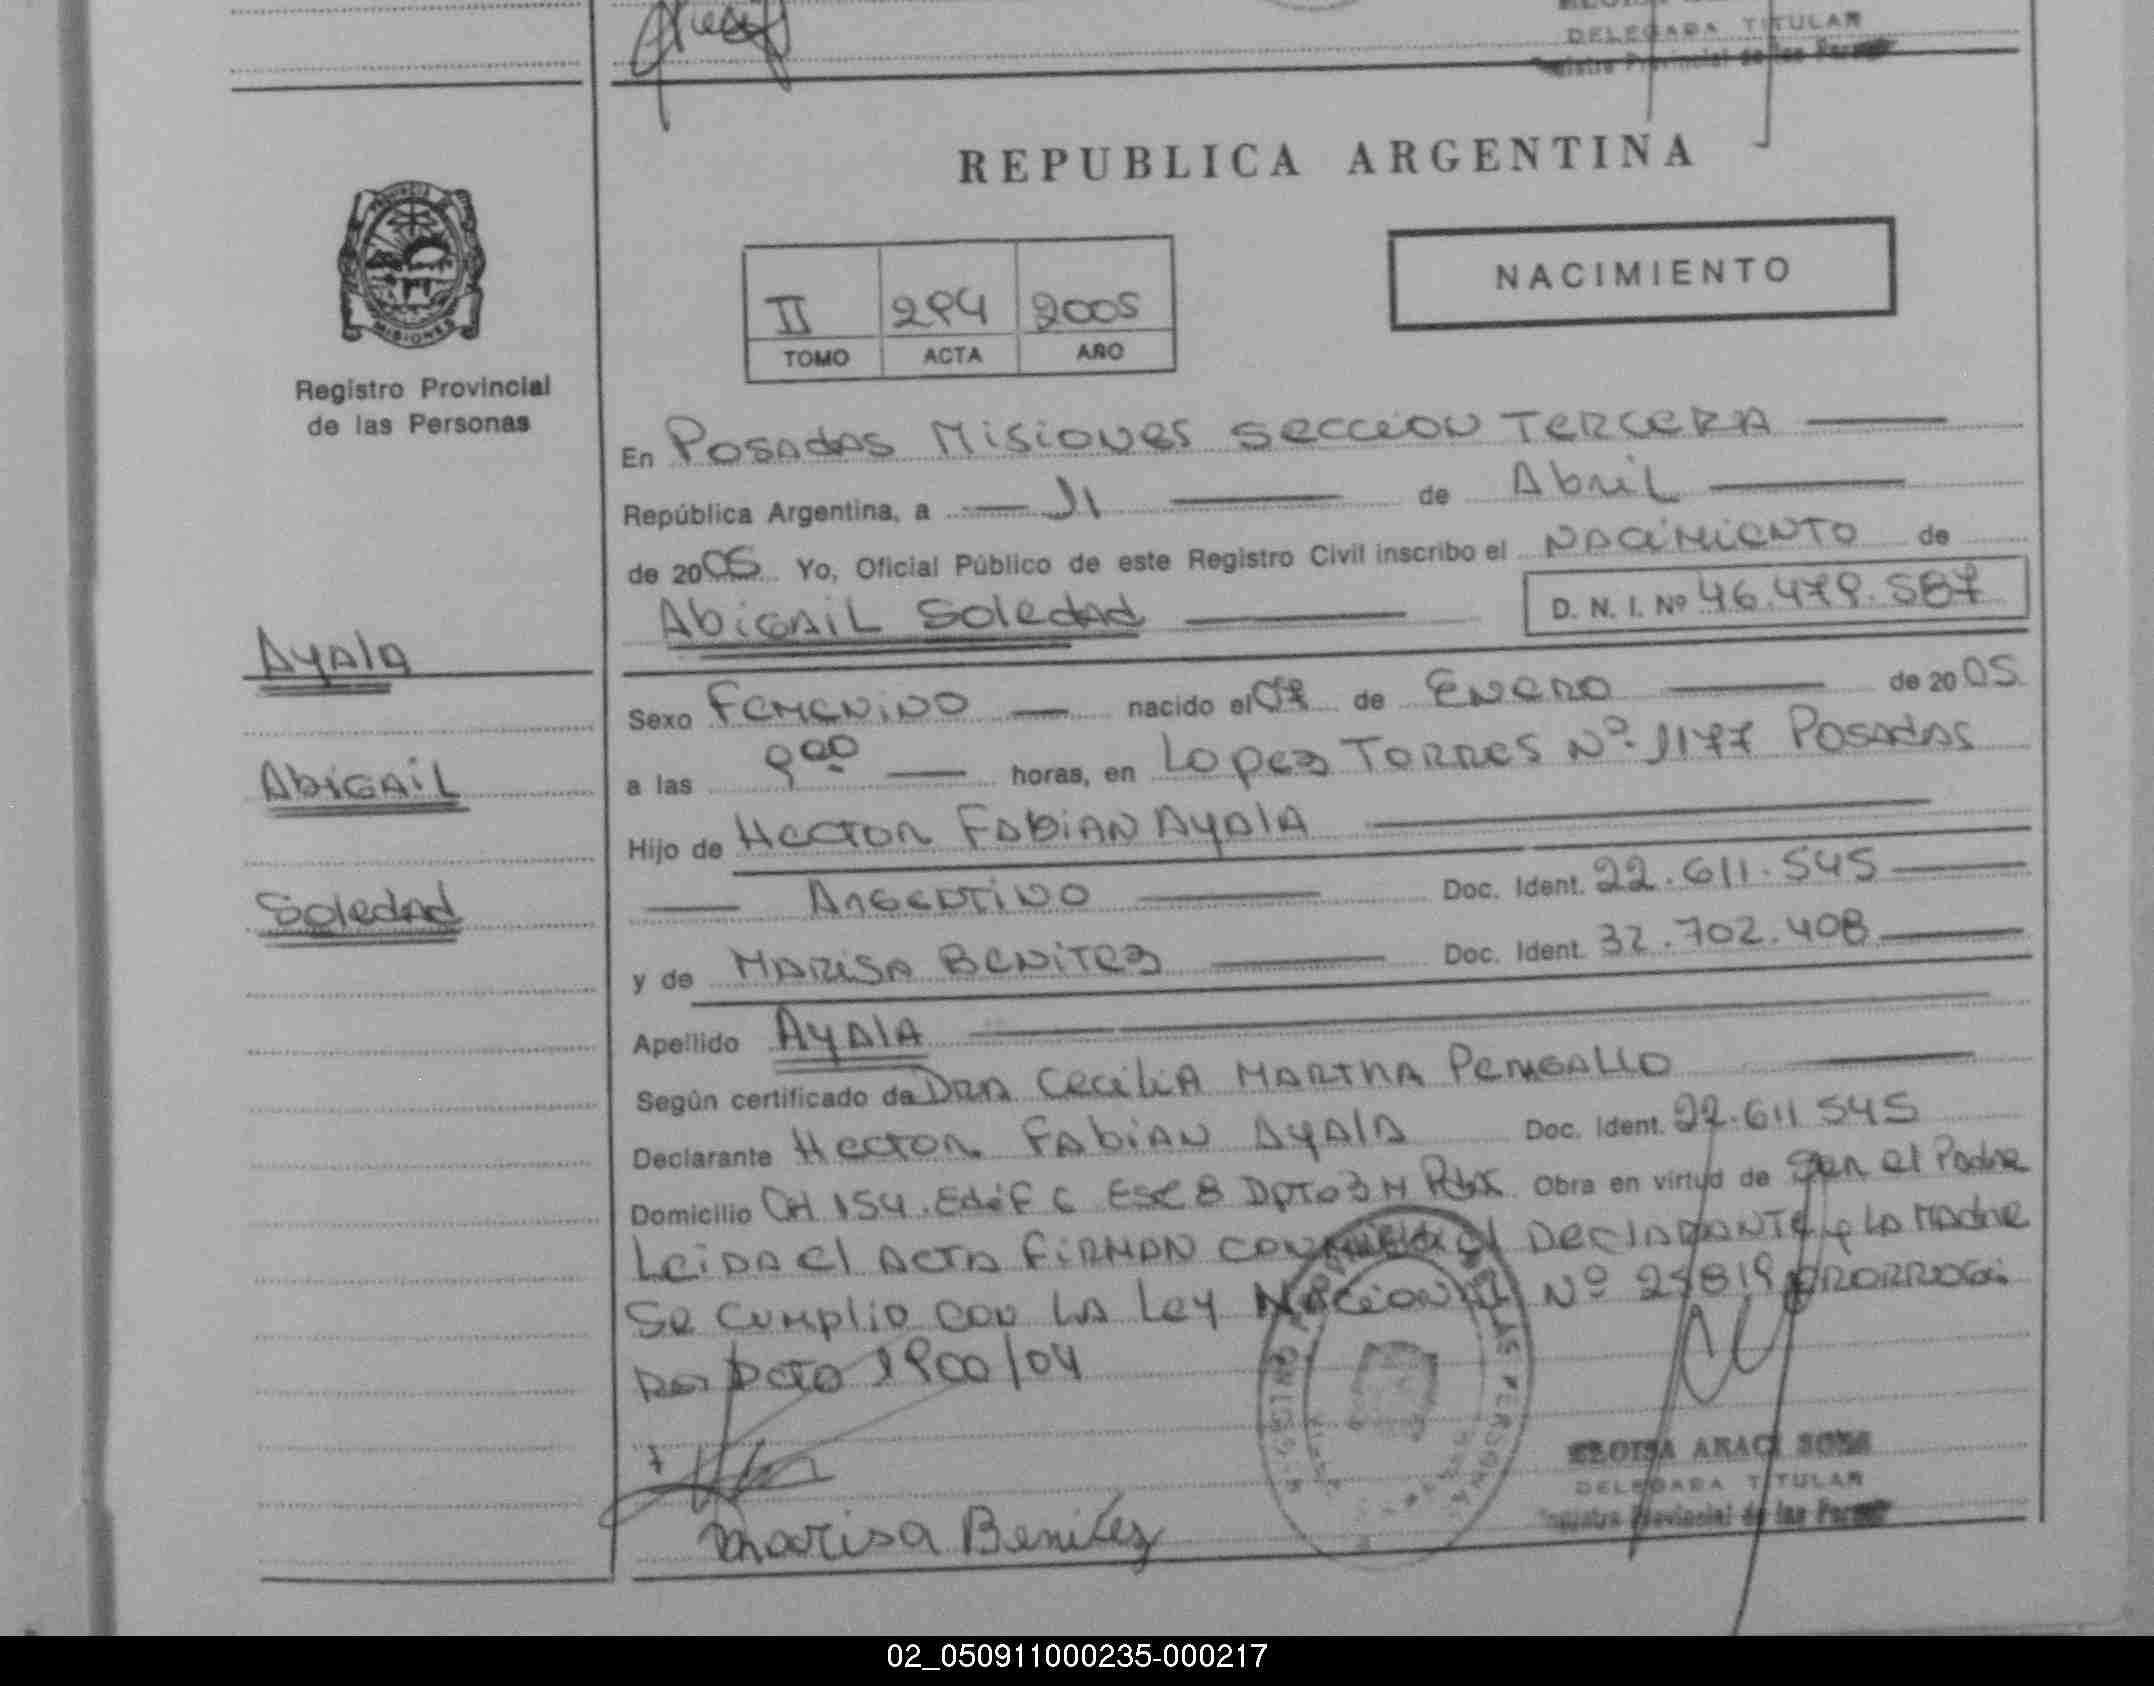 DELEGADA TITULAR
REPUBLICA ARGENTINA
PROVINCIA
MISIONES
Registro Provincial
de las Personas
NACIMIENTO
II 294 2005
TOMO ACTA AÑO
En Posadas Misiones Seccion Tercera
República Argentina, a 11 de Abril
de 2005 Yo, Oficial Público de este Registro Civil inscribo el Nacimiento de
Abigail Soledad D. N. I. Nº 46.479.587
Ayala
Abigail
Soledad
Sexo Femenino nacido el 07 de Enero de 2005
a las 9 00 horas, en Lopez Torres Nº 1177 Posadas
Hijo de Hector Fabian Ayala
Argentino Doc. Ident. 22.611.545
y de Marisa Benitez Doc. Ident. 32.702.408
Apellido Ayala
Según certificado de Dra Cecilia Martha
Declarante Hector Fabian Ayala Doc. Ident. 22.611 545
Domicilio CH 154. Edif 6 Esc 8 Dpto 3 H Pdas Obra en virtud de Ser el Padre
Leida el Acta firman conmigo el Declarante y La Madre
Se cumplio con La Ley Nacional Nº 25819
Dcto 1900/04
Marisa Benitez
ELOISA ARACI SOSA
DELEGADA TITULAR
Registro Provincial de las
02_050911000235-000217